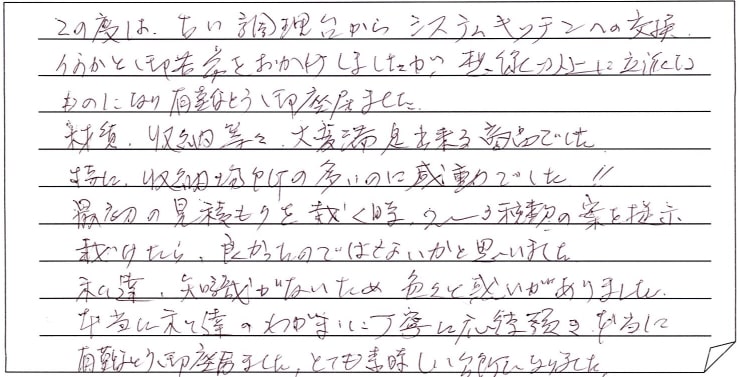 この度は、古い調理台からシステムキッチンへの交換、
何かと御苦労をおかけしましたが、想像以上に立派な
ものになり有難とう御座居ました。
材質、収納等々、大変満足出来る商品でした。
特に、収納場所の多いのに感動でした!!
最初の見積もりを戴く時、2〜3種類の案を提示
戴けたら、良かったのではないかと思いました
私達、知識がないため色々と惑いがありました。
本当に私達のわがままに丁寧に応待頂き本当に
有難とう御座居ました。とても素晴しい台所になりました。